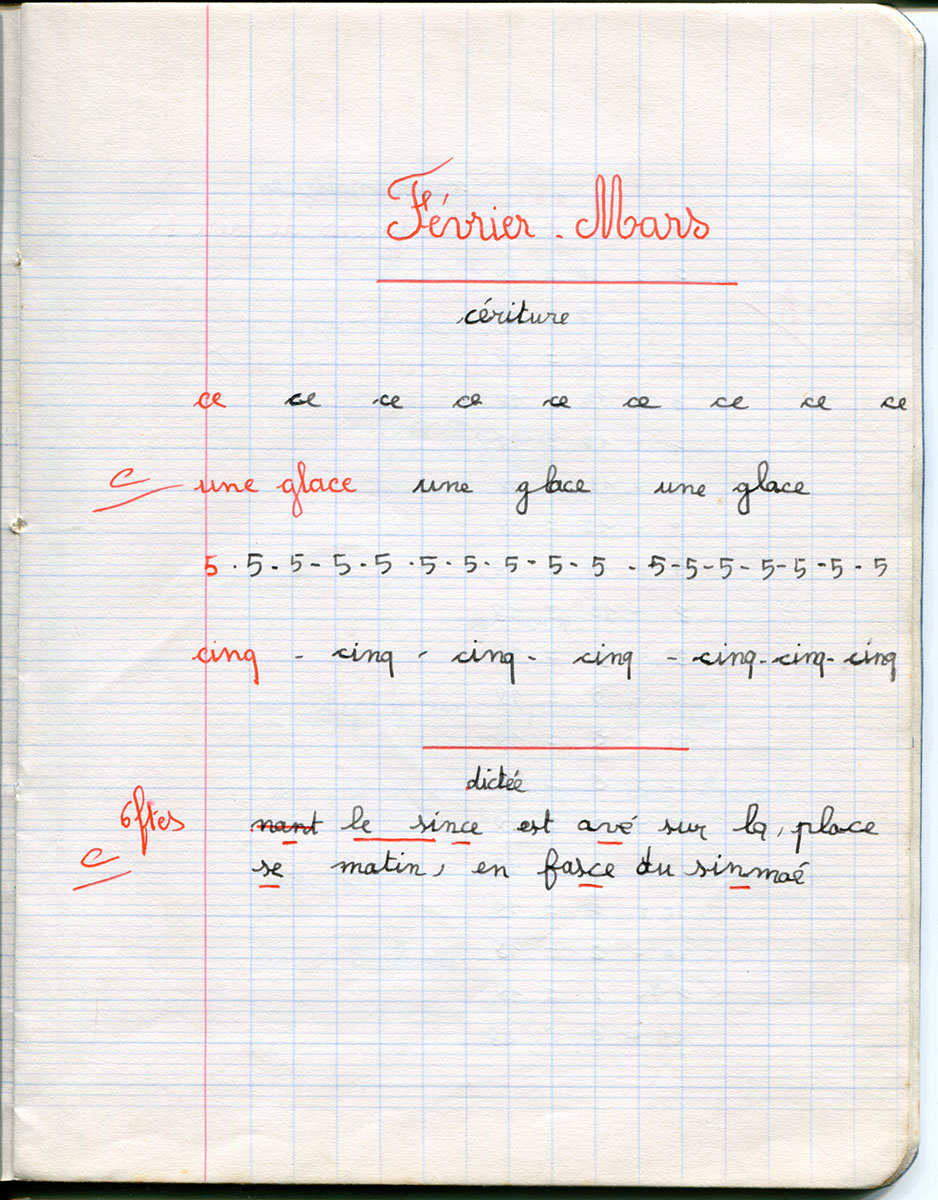 Février - Mars
cériture
ce ce ce ce ce ce ce ce ce
c une glace une glace une glace
5 . 5 - 5 - 5 - 5 . 5 . 5 . 5 - 5 - 5 - 5 - 5 - 5 - 5 - 5 - 5 - 5
cinq - cinq - cinq - cinq - cinq - cinq - cinq
dictée
6 ftes nant le since est avé sur la, place
c se matin, en fasce du sinmaé